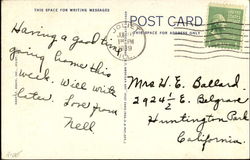 THIS SPACE FOR WRITING MESSAGES
POST CARD
THIS SPACE FOR ADDRESS ONLY
Having a good time
going home this
week. Will write
later. Love from
Nell
Mrs H. E. Ballard
2924½ E. Belgrave
Huntington Park
California